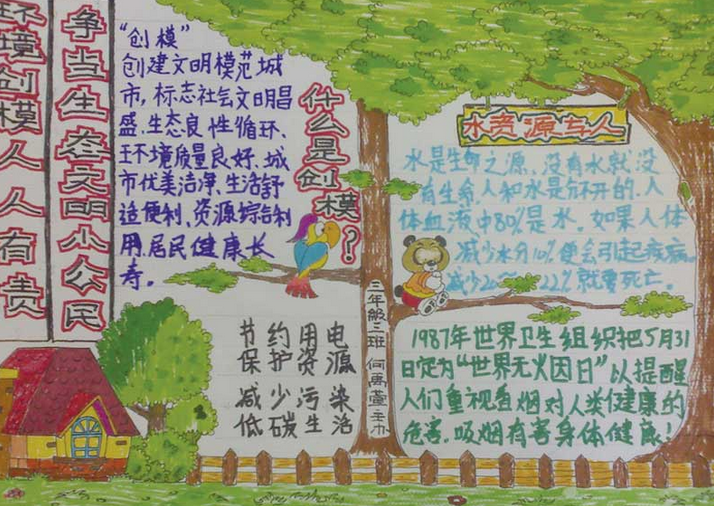 环境创模人人有责
争当生态文明小公民
“创模”
创建文明模范城
市,标志社会文明昌
盛、生态良性循环、
环境质量良好、城
市优美洁净、生活舒
适便利、资源综合利
用、居民健康长
寿。
什么是创模?
节约用电
保护资源
减少污染
低碳生活
三年级三班
水资源与人
水是生命之源,没有水就没
有生命,人和水是分不开的,人
体血液中80%是水。如果人体
减少水分10%便会引起疾病。
减少20%~22%就要死亡。
1987年世界卫生组织把5月31
日定为“世界无火因日”以提醒
人们重视香烟对人类健康的
危害。吸烟有害身体健康!